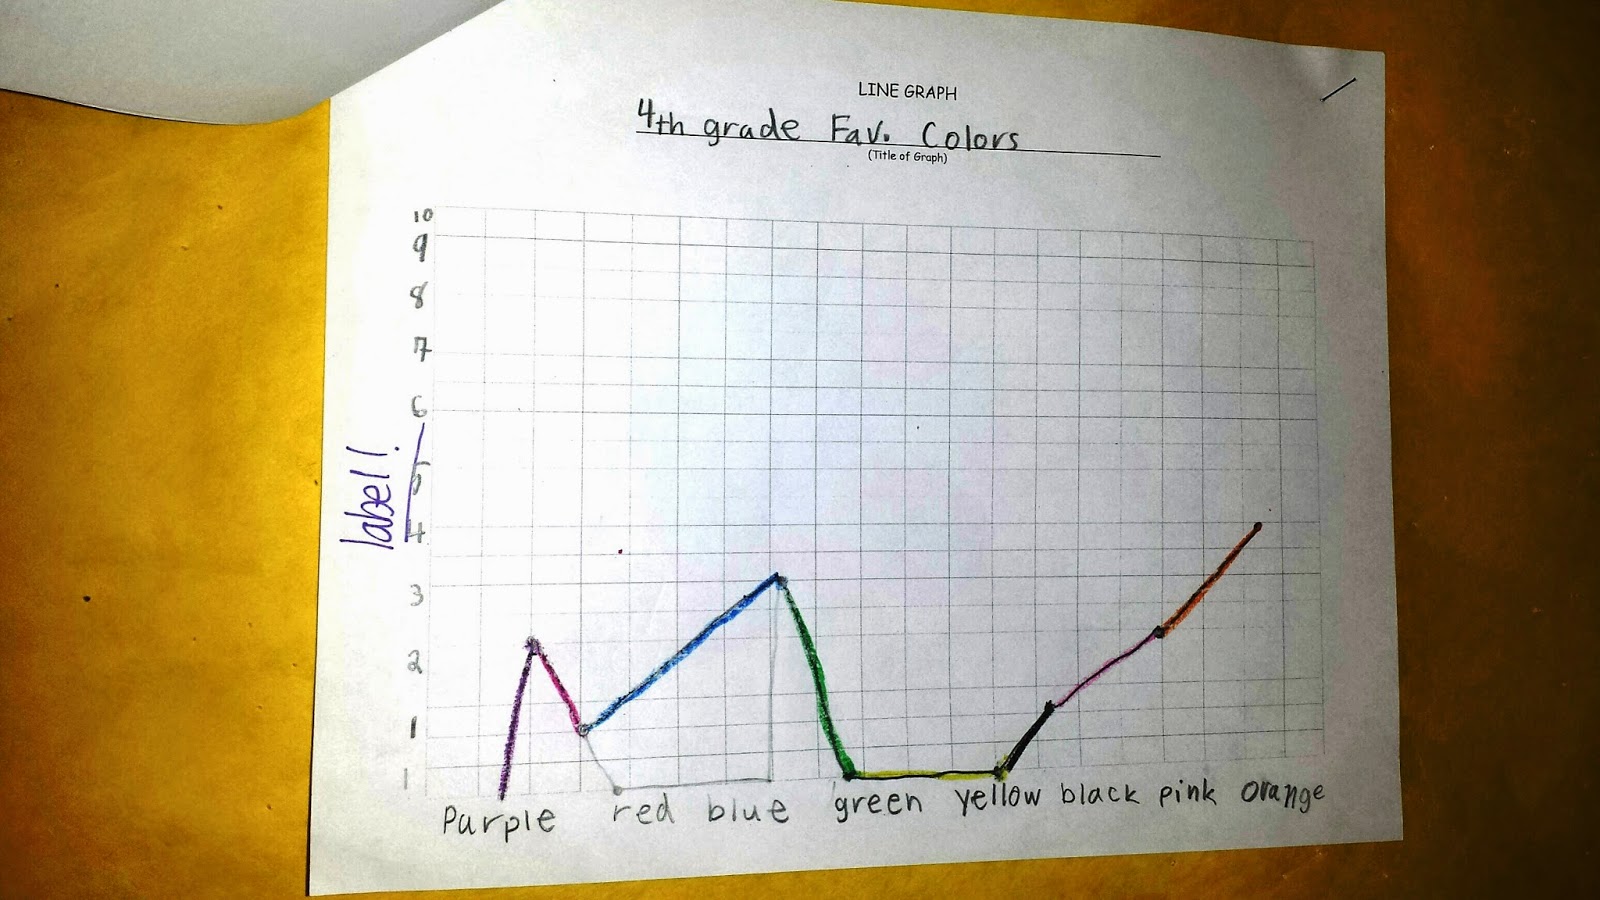 LINE GRAPH
4th grade Fav. Colors
(Title of Graph)
10
9
8
7
6
5
4
3
2
1
1
label!
Purple red blue green yellow black pink orange